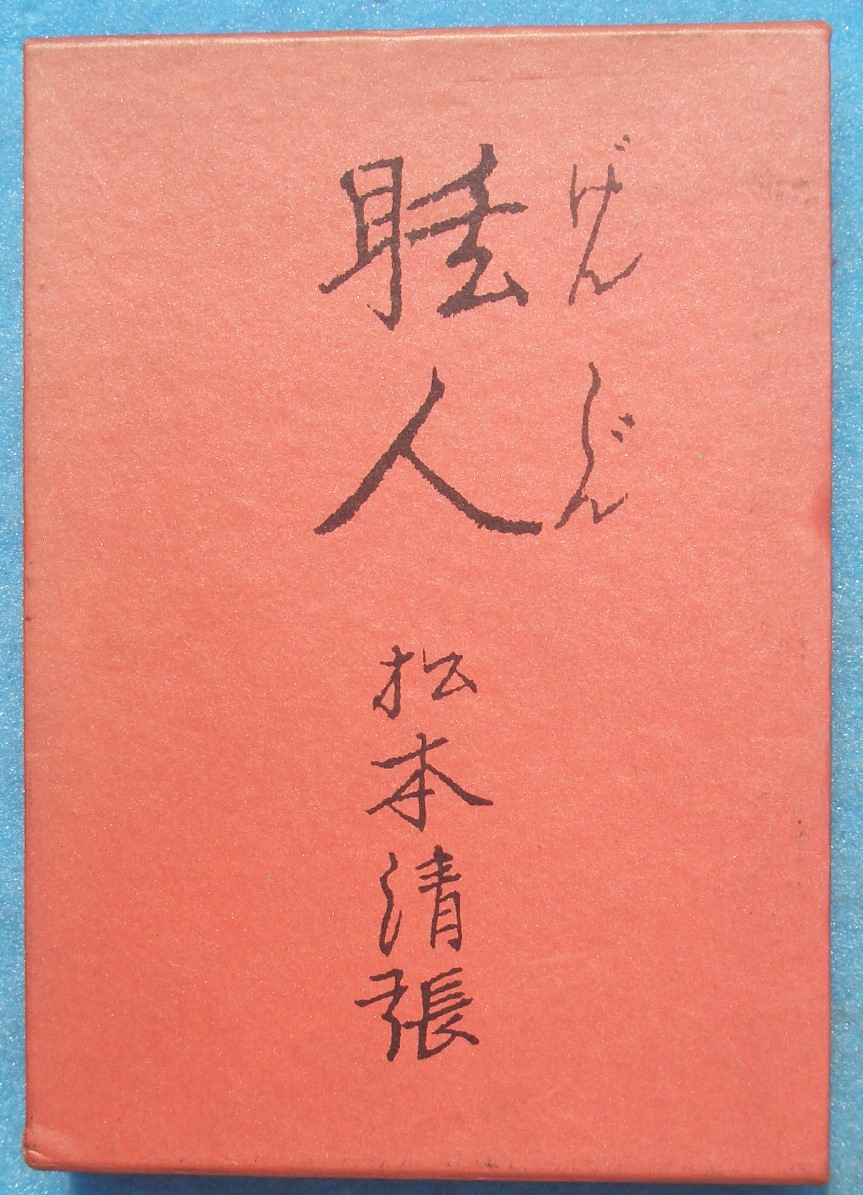 げんじん
眩人
松本清張